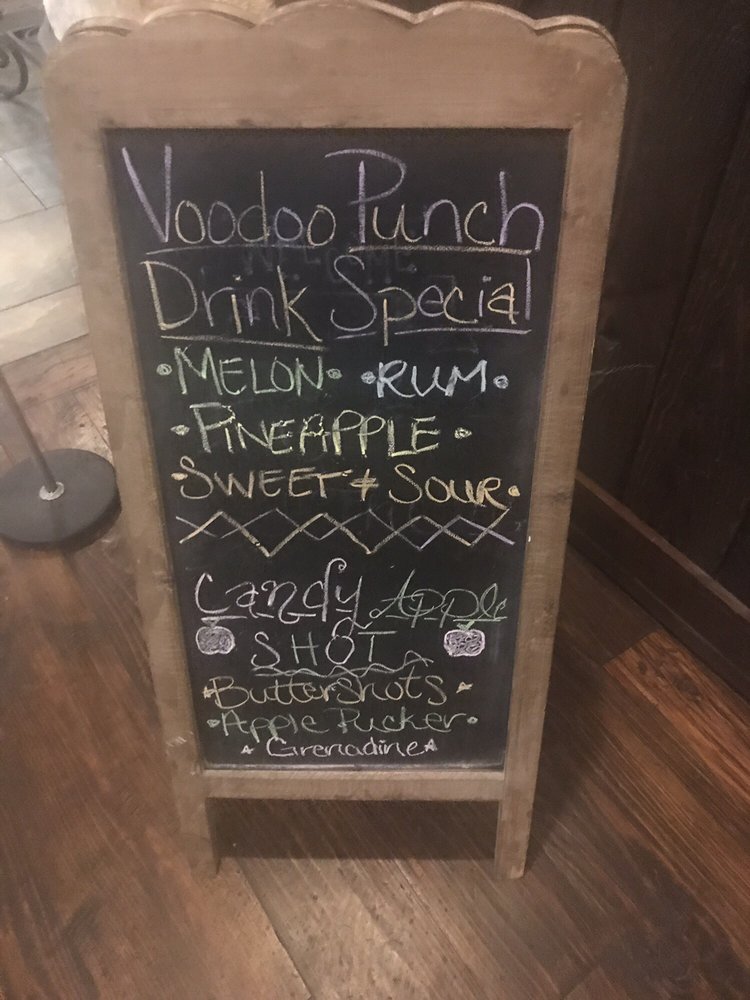 Voodoo Punch
Drink Special
• MELON • • RUM •
• PINEAPPLE •
• SWEET & SOUR •
Candy Apple
SHOT
Buttershots
• Apple Pucker •
Grenadine